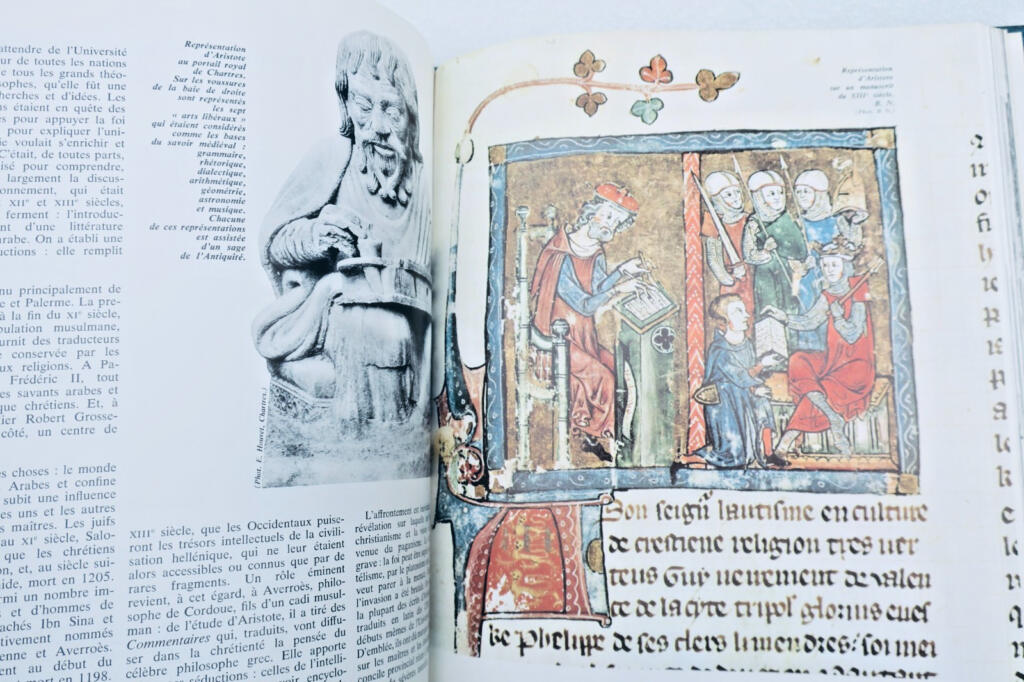 attendre de l'Université
ur de toutes les nations
e tous les grands théo-
sophes, qu'elle fût une
herches et d'idées. Les
ns étaient en quête des
es pour appuyer la foi
pour expliquer l'uni-
ie voulait s'enrichir et
C'était, de toutes parts,
isé pour comprendre,
largement la discus-
onnement, qui était
XIIe et XIIIe siècles,
ferment : l'introduc-
nt d'une littérature
arabe. On a établi une
ductions : elle remplit
nu principalement de
e et Palerme. La pre-
à la fin du XIe siècle,
pulation musulmane,
urnit des traducteurs
e conservée par les
ux religions. A Pa-
Frédéric II, tout
es savants arabes et
que chrétiens. Et, à
ier Robert Grosse-
côté, un centre de
es choses : le monde
Arabes et confine
subit une influence
es uns et les autres
maîtres. Les juifs
au XIe siècle, Salo-
que les chrétiens
on, et, au siècle sui-
ide, mort en 1205.
rmi un nombre im-
s et d'hommes de
achés Ibn Sina et
ctivement nommés
enne et Averroès.
ent au début du
mort en 1198.
Représentation
d'Aristote
au portail royal
de Chartres.
Sur les voussures
de la baie de droite
sont représentés
les sept
« arts libéraux »
qui étaient considérés
comme les bases
du savoir médiéval :
grammaire,
rhétorique,
dialectique,
arithmétique,
géométrie,
astronomie
et musique.
Chacune
de ces représentations
est assistée
d'un sage
de l'Antiquité.
(Phot. E. Houvet, Chartres.)
XIIIe siècle, que les Occidentaux puise-
ront les trésors intellectuels de la civili-
sation hellénique, qui ne leur étaient
alors accessibles ou connus que par de
rares fragments. Un rôle éminent
revient, à cet égard, à Averroès, philo-
sophe de Cordoue, fils d'un cadi musul-
man : de l'étude d'Aristote, il a tiré des
Commentaires qui, traduits, vont diffu-
ser dans la chrétienté la pensée du
célèbre philosophe grec. Elle apporte
séductions : celles de l'intelli-
encyclo-
L'affrontement est
révélation sur laquelle
christianisme et la
venue du paganisme
grave : la foi peut être
télisme, par le
veut parer à la
l'invasion a été
la plupart des écrits
débuts mêmes de
D'emblée, ils ont été
sur les maîtres et les
concile provincial
de sévères
Représentation
d'Aristote
sur un manuscrit
du XIIIe siècle.
B. N.
(Phot. B. N.)
son seigur lautisme en culture
de crestiene religion tres ver
teus Guy uenement de valen
ce de la cyte tripol glorius eues
ke Phelippe de ses clers li mendres soi mei